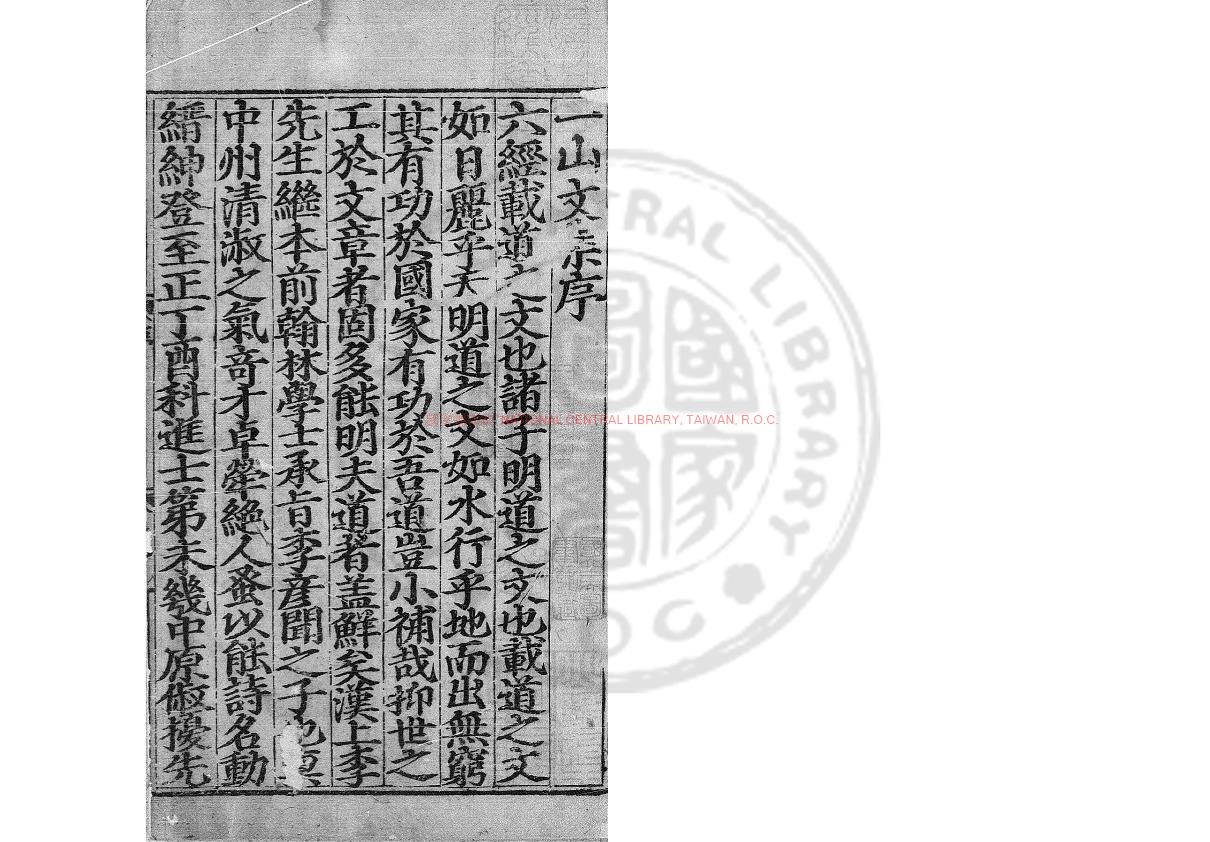 一山文集序
六經載道之文也諸子明道之文也載道之文
如日麗乎天明道之文如水行乎地而出無窮
其有功於國家有功於吾道豈小補哉抑世之
工於文章者固多能明夫道者盖鮮矣漢上李
先生繼本前翰林學士承旨李彦聞之子也稟
中州清淑之氣竒才卓犖絶人蚤以能詩名動
縉紳登至正丁酉科進士第未幾中原俶擾先
NATIONAL CENTRAL LIBRARY, TAIWAN, R.O.C.
CENTRAL LIBRARY
R.O.C